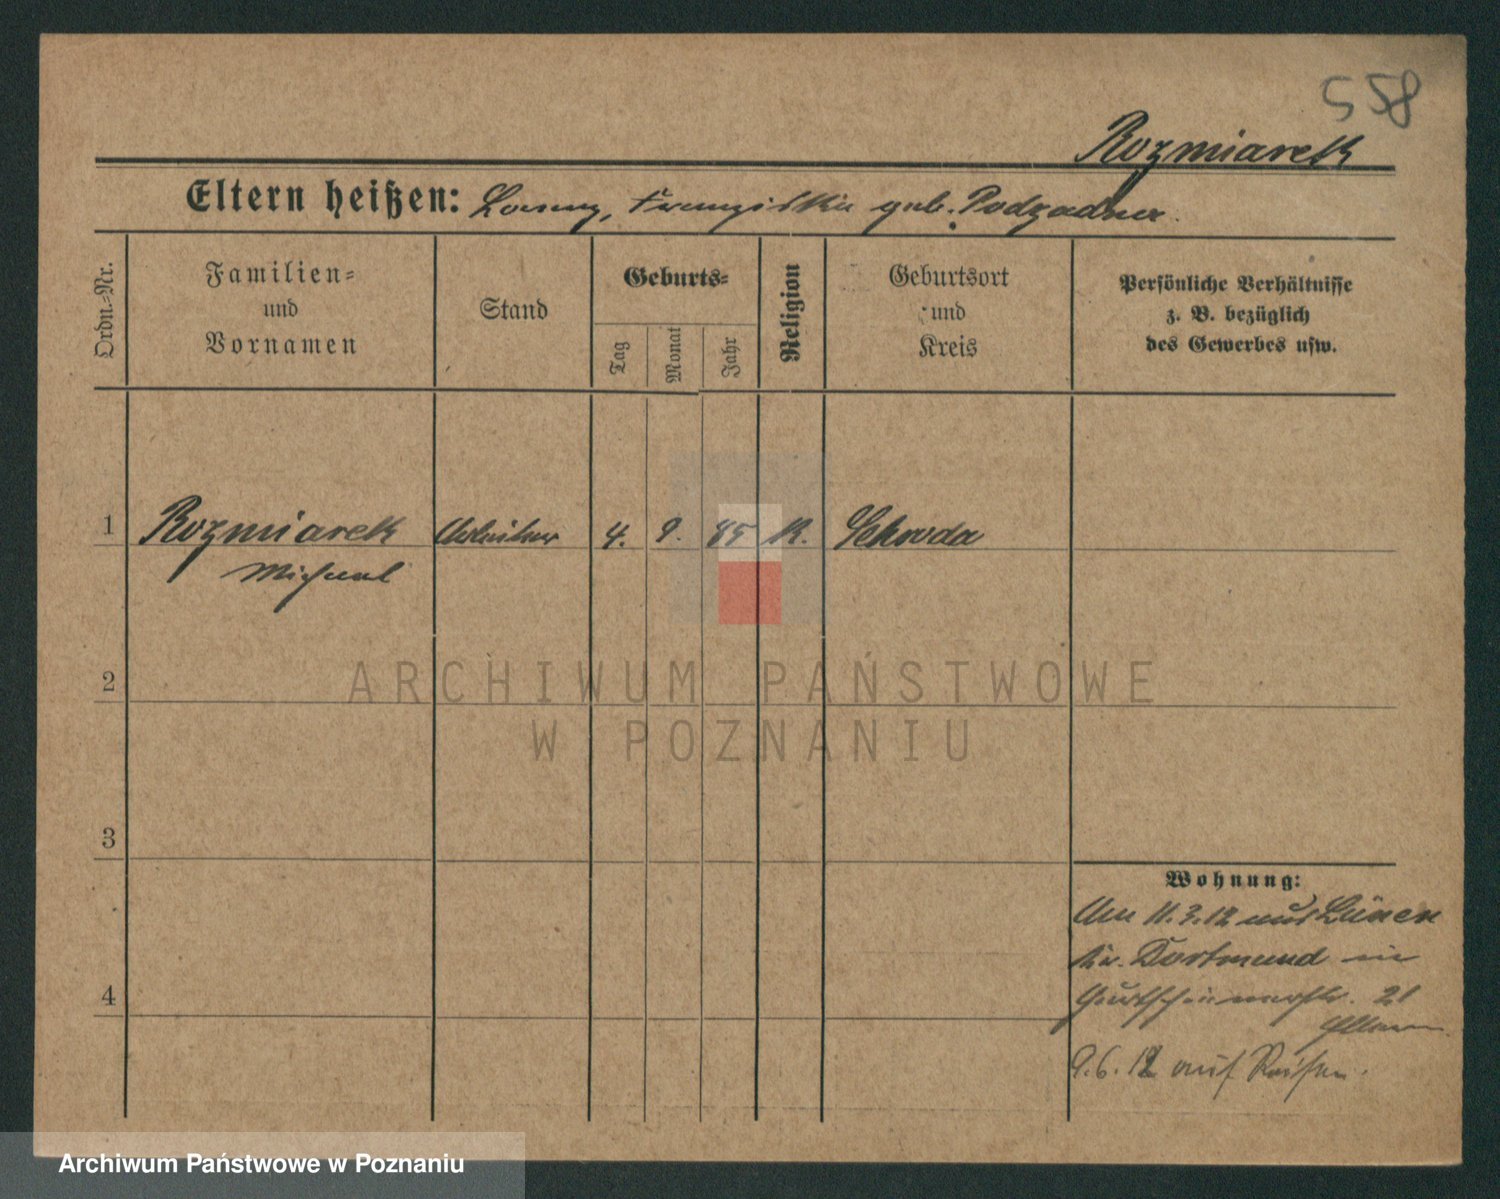 558
Rozmiarek
Eltern heißen: Lorenz, Franziska geb. Podzadna.
Ordn.-Nr.
Familien-
und
Vornamen
Stand
Geburts-
Tag
Monat
Jahr
Religion
Geburtsort
und
Kreis
Persönliche Verhältnisse
z. B. bezüglich
des Gewerbes usw.
1 Rozmiarek Arbeiter 4. 9. 85 K.
Michael
2
ARCHIWUM PAŃSTWOWE
W POZNANIU
3
Wohnung:
Am 11.3.12 aus Lünen
Kr. Dortmund in
21
4
Eltern
9.6.12 auf Reisen.
Archiwum Państwowe w Poznaniu